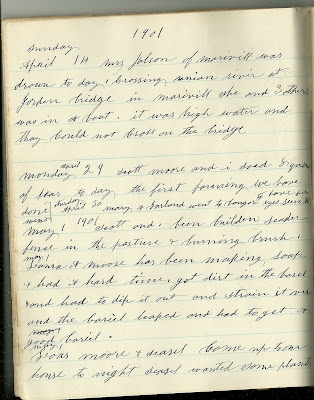 1901
Sunday
April 14 mrs Jolson of marivitt was
drown to day, Crossing union river at
Jorden bridge in marivitt she and 3 others
was in a boat. it was high water and
thay Could not Cross on the bridge
monday april 29 Scott moore and i soad
of to day the first farming we have
done
april 30 mary & Garland went to to have eyes
went
may 1 1901 Scott and i been builden seader
fence in the pasture & burning brush.
may 1
Laura & moore has been making soap
& had a hard time. got dirt in the barel
and had to dip it out and strain it over
and the barrel leaped and had to get a
good barel.
moore & deasel Come up to our
house to night deasel wanted some plants